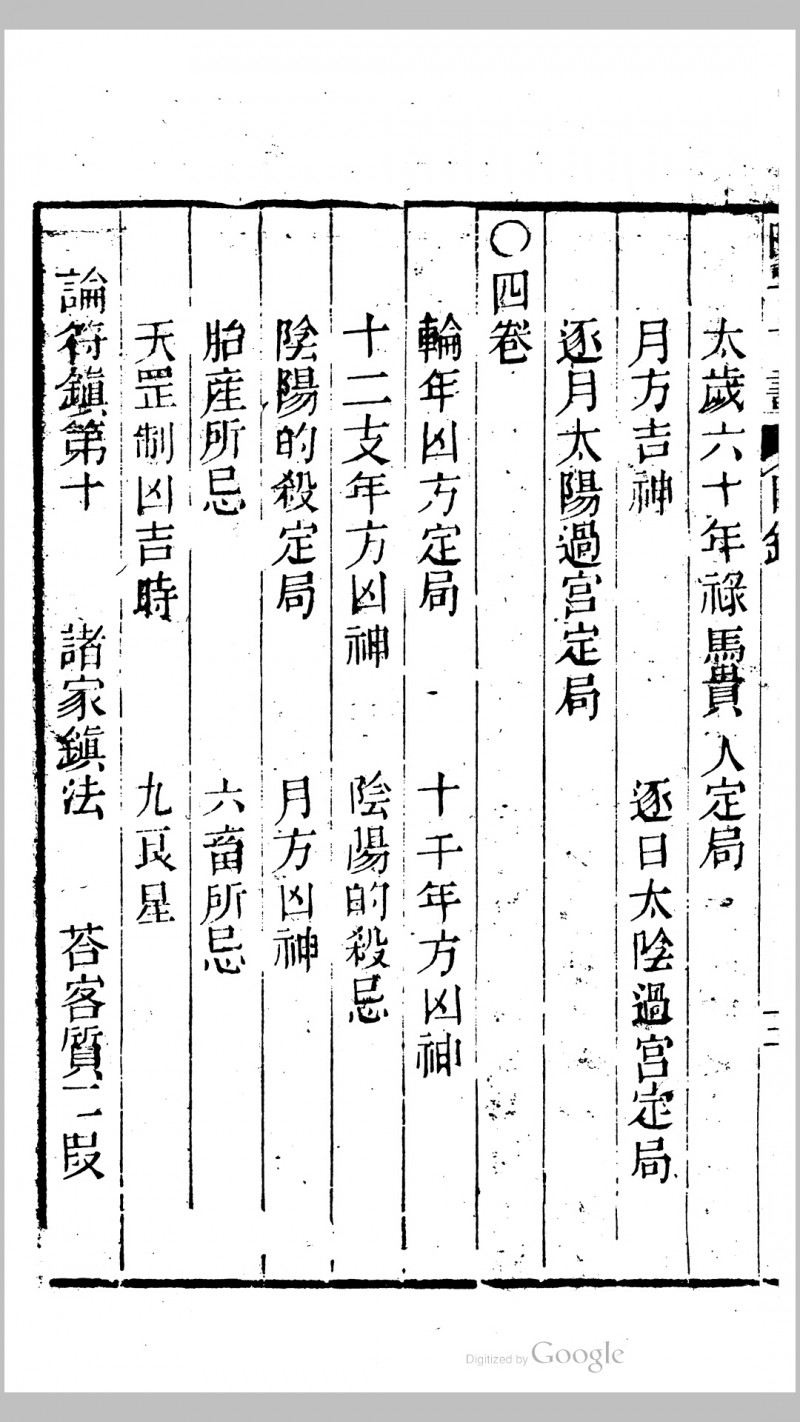 太歲六十年祿馬貴人定局
月方吉神　逐日太陰過宮定局
逐月太陽過宮定局
○四卷
輪年凶方定局　十干年方凶神
十二支年方凶神　陰陽的殺忌
陰陽的殺定局　月方凶神
胎產所忌　六畜所忌
天罡制凶吉時　九良星
論符鎮第十　諸家鎮法　荅客質二段
Digitized by Google